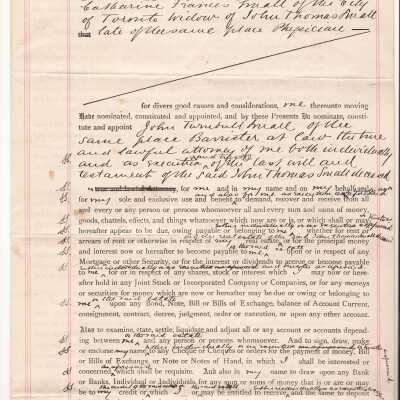 Catharine Frances Small of the City
of Toronto Widow of John Thomas Small
that late of the same place Physician —
for divers good causes and considerations, me thereunto moving
Have nominated, constituted and appointed, and by these Presents Do nominate, consti-
tute and appoint John Turnbull Small of the
same place Barrister at Law the true
and lawful attorney of me both individually
and as executrix of the last will and
testament of the said John Thomas Small deceased
true and lawful Attorney, for me and in my name and on my behalf
for my sole and exclusive use and benefit to demand, recover and receive from all
and every or any person or persons whomsoever all and every sum and sums of money,
goods, chattels, effects, and things whatsoever which now are or is, or which shall or may
hereafter appear to be due, owing payable or belonging to me whether for rent or
arrears of rent or otherwise in respect of my real estate, or for the principal money
and interest now or hereafter to become payable to me upon or in respect of any
Mortgage or other Security, or for the interest or dividends to accrue or become payable
to me for or in respect of any shares, stock or interest which I may now or here-
after hold in any Joint Stock or Incorporated Company or Companies, or for any moneys
or securities for money which are now or hereafter may be due or owing or belonging to
me upon any Bond, Note, Bill or Bills of Exchange, balance of Account Current,
consignment, contract, decree, judgment, order or execution, or upon any other account.
Also to examine, state, settle, liquidate and adjust all or any account or accounts depend-
ing between me and any person or persons whomsoever. And to sign, draw, make
or endorse my name to any Cheque or Cheques or orders for the payment of money, Bill
or Bills of Exchange, or Note or Notes of Hand, in which I shall be interested or
concerned, which shall be requisite. And also in my name to draw upon any Bank
or Banks, Individual or Individuals, for any sum or sums of money that is or are or may
be to my credit or which I may be entitled to receive, and the same to deposit